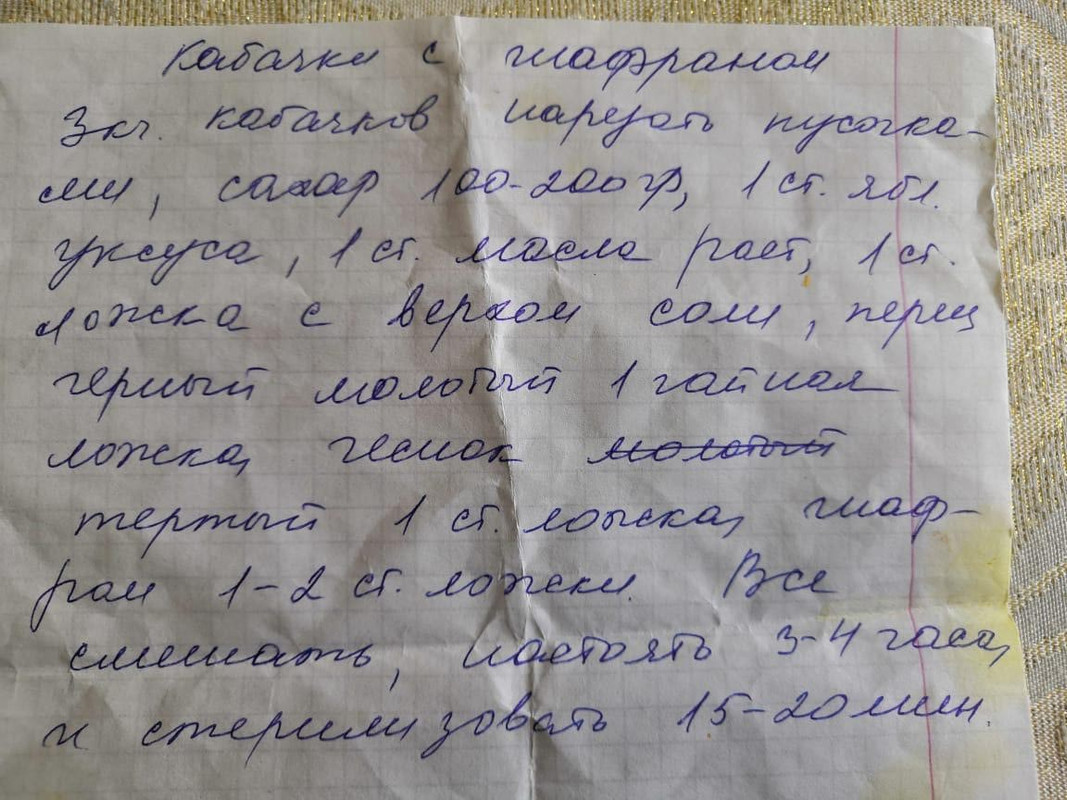 Кабачки с шафраном
3кг. кабачков нарезать кусочка-
ми, сахар 100-200гр, 1 ст. ябл.
уксуса, 1 ст. масла раст, 1 ст.
ложка с верхом соли, перец
черный молотый 1 чайная
ложка, чеснок молотый
тертый 1 ст. ложка, шаф-
ран 1-2 ст. ложки. Все
смешать, настоять 3-4 часа,
и стерилизовать 15-20 мин.